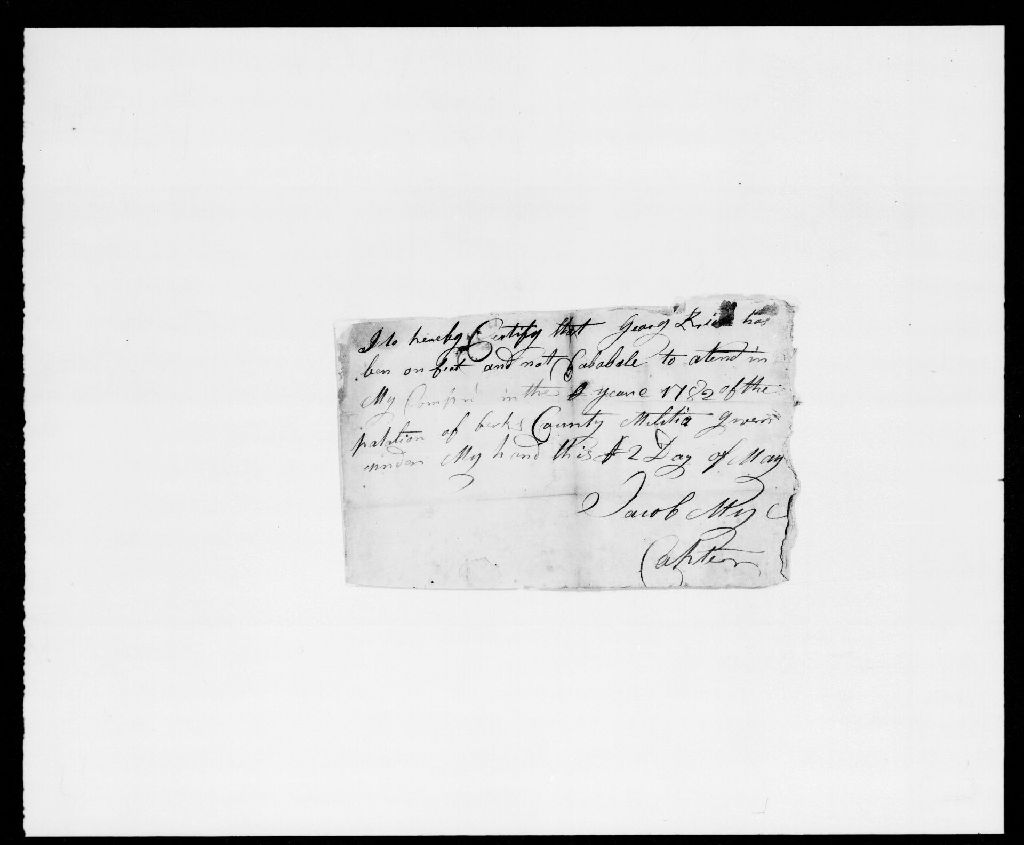 I do hereby Certify that Georg has
ben on fiat and not Cababale to atend in
My Compni in the yeare 1782 of the
patalion of berks County Militia Given
under My hand this 2 Day of May
Jacob My
Capten